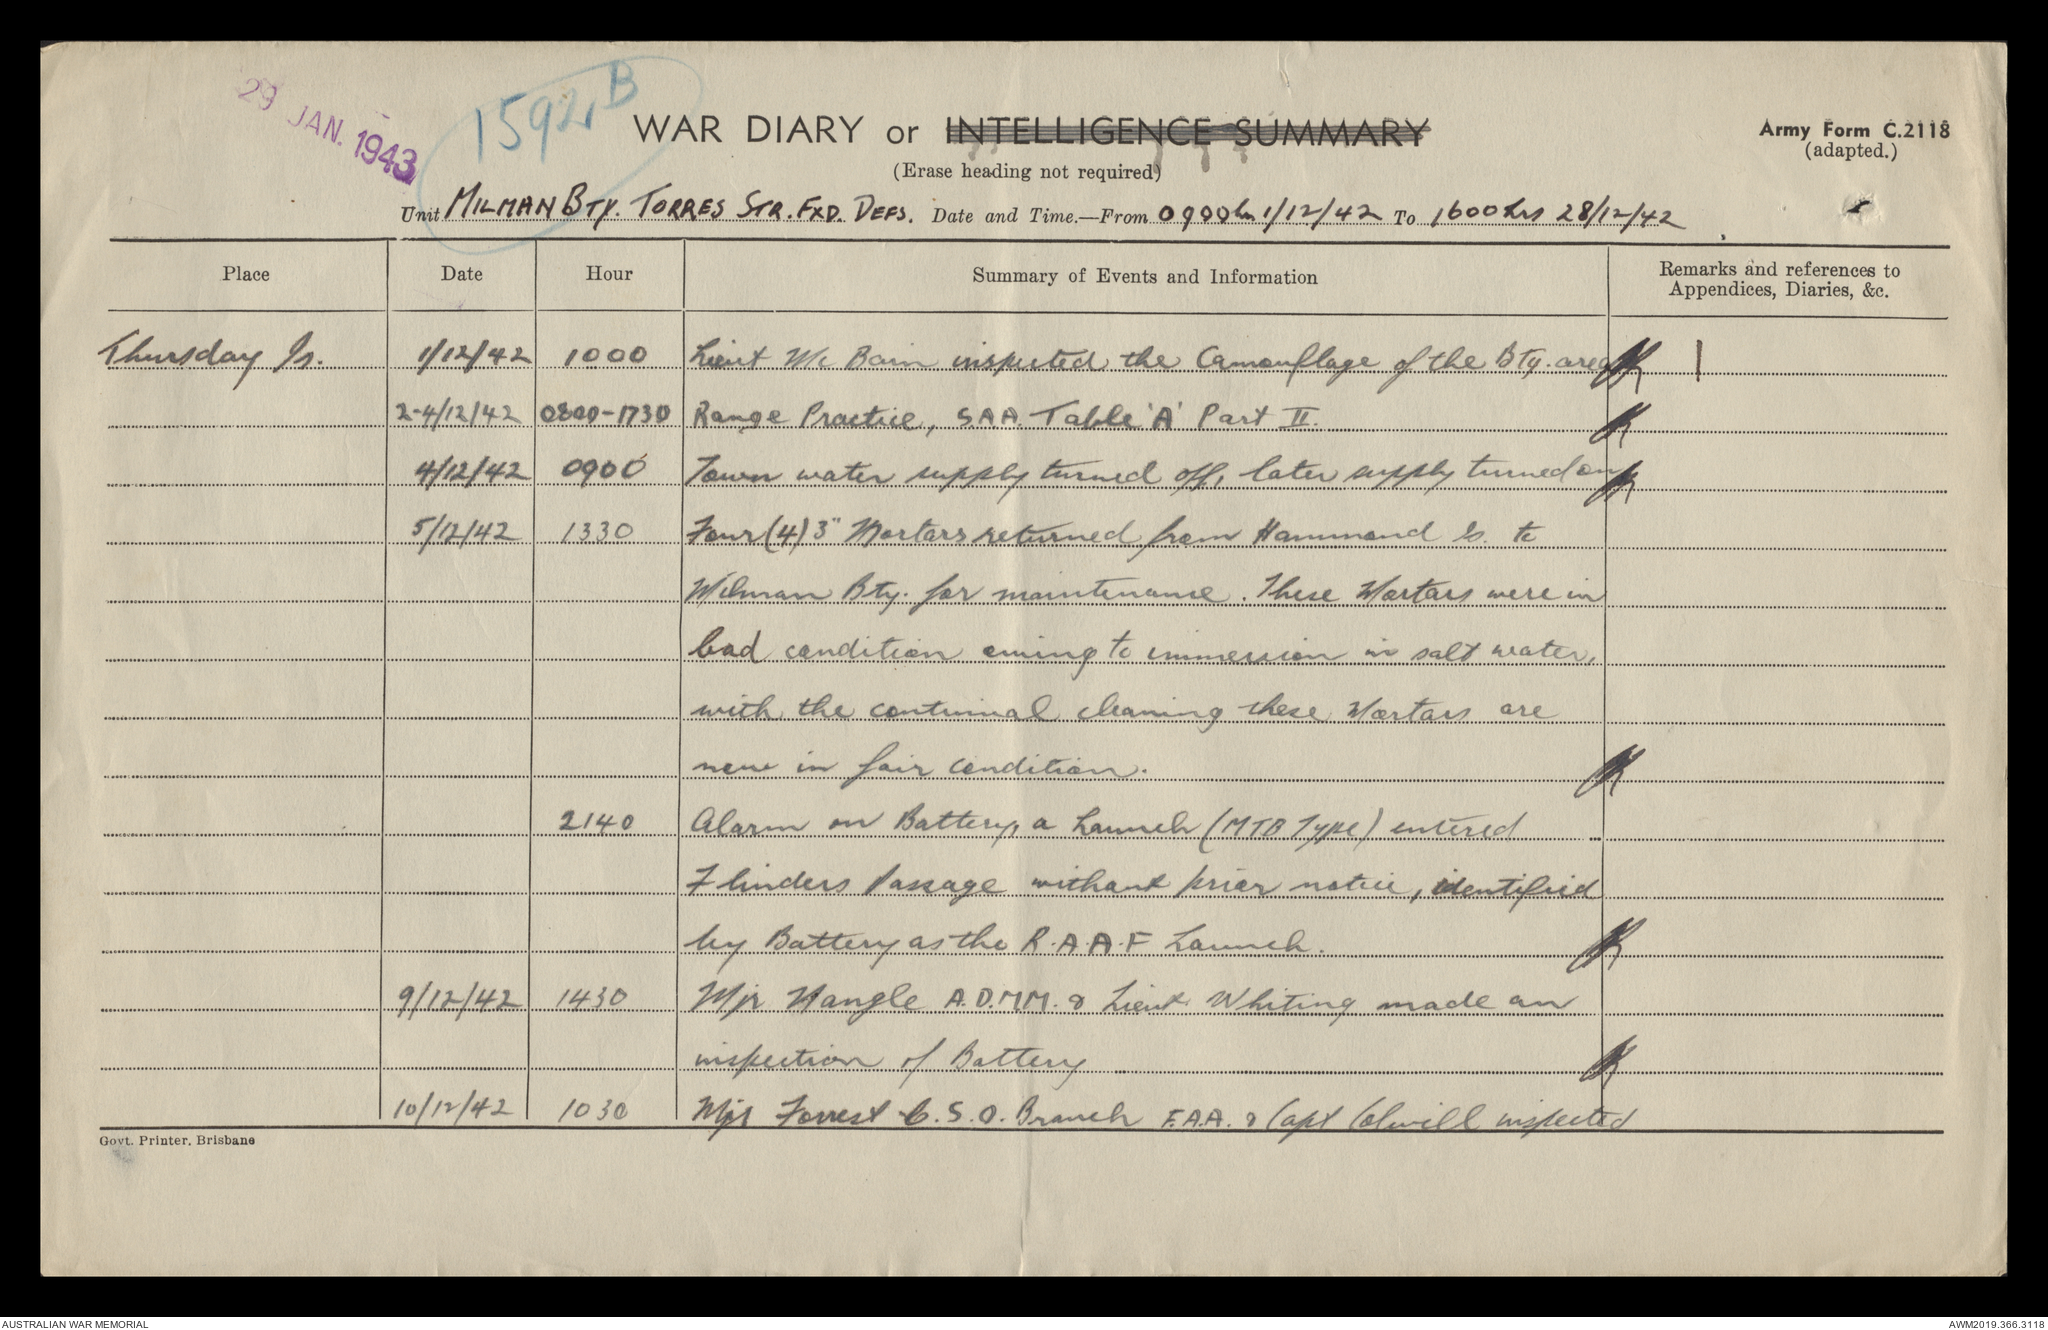 29 JAN. 1943
1592B
WAR DIARY or INTELLIGENCE SUMMARY
Army Form C.2118
(adapted.)
(Erase heading not required)
Unit MILMAN BTY. TORRES STR. FXD. DEFS. Date and Time.—From 0900hrs 1/12/42 To 1600hrs 28/12/42
Place Date Hour Summary of Events and Information Remarks and references to
Appendices, Diaries, &c.
Thursday Is. 1/12/42 1000 Lieut Mc Bain inspected the Camouflage of the Bty. area 1
2-4/12/42 0800-1730 Range Practice, S.A.A. Table 'A' Part II.
4/12/42 0900 Town water supply turned off, later supply turned on
5/12/42 1330 Four (4) 3" Mortars returned from Hammond Is. to
Milman Bty. for maintenance. These Mortars were in
bad condition owing to immersion in salt water,
with the continual cleaning these Mortars are
now in fair condition.
2140 Alarm on Battery, a Launch (MTB Type) entered
Flinders Passage without prior notice, identified
by Battery as the R.A.A.F Launch.
9/12/42 1430 Mjr Nangle A.D.M.M. & Lieut Whiting made an
inspection of Battery
10/12/42 1030 Mjr Forrest C.S.O. Branch F.A.A. & Capt Colwill inspected
Govt. Printer, Brisbane
AUSTRALIAN WAR MEMORIAL
AWM2019.366.3118